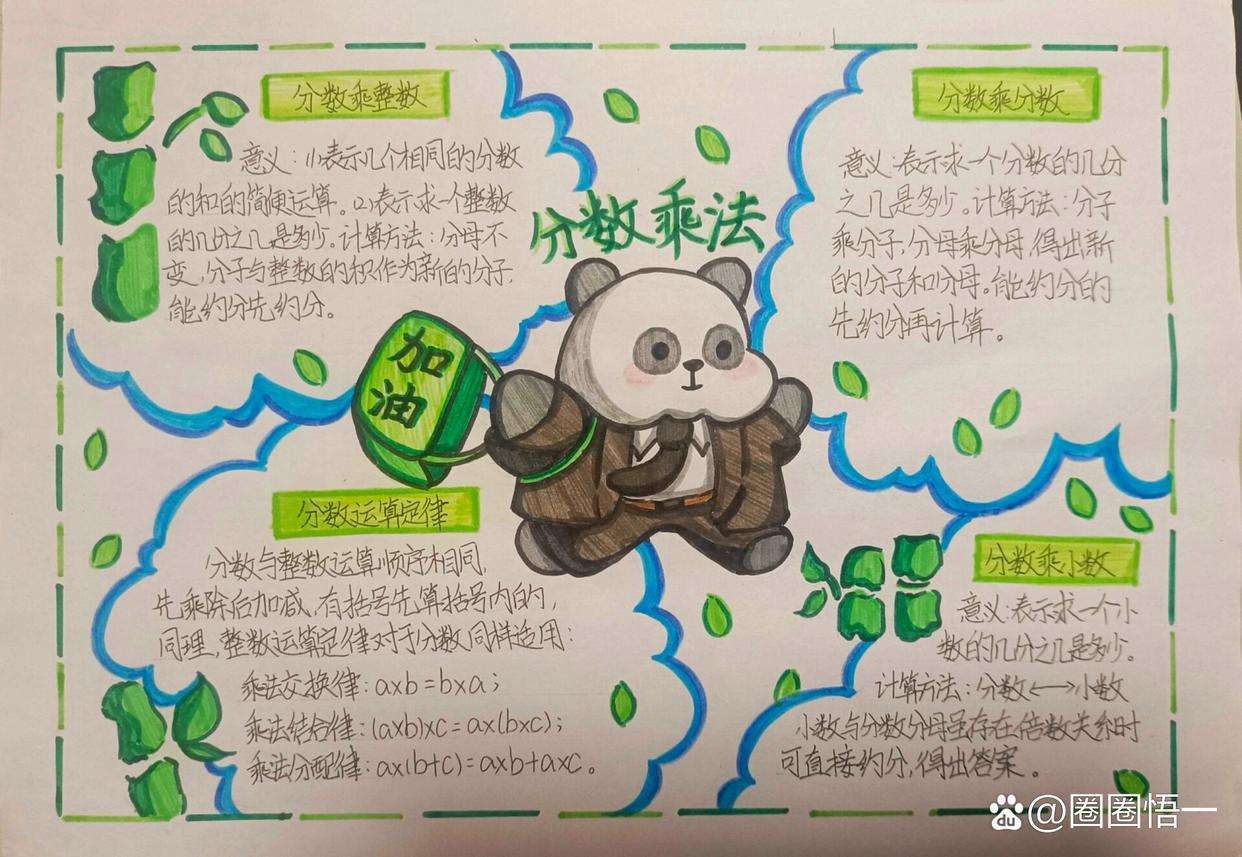 分数乘整数
意义：(1)表示几个相同的分数
的和的简便运算。(2)表示求一个整数
的几分之几是多少。计算方法：分母不
变，分子与整数的积作为新的分子，
能约分先约分。
分数乘法
分数乘分数
意义：表示求一个分数的几分
之几是多少。计算方法：分子
乘分子，分母乘分母，得出新
的分子和分母。能约分的
先约分再计算。
加
油
分数运算定律
分数与整数运算顺序相同，
先乘除后加减，有括号先算括号内的，
同理，整数运算定律对于分数同样适用：
乘法交换律：a×b=b×a；
乘法结合律：(a×b)×c=a×(b×c)；
乘法分配律：a×(b+c)=a×b+a×c。
分数乘小数
意义：表示求一个小
数的几分之几是多少。
计算方法：分数⟷小数
小数与分数分母虽存在倍数关系时
可直接约分，得出答案。
du @圈圈悟一